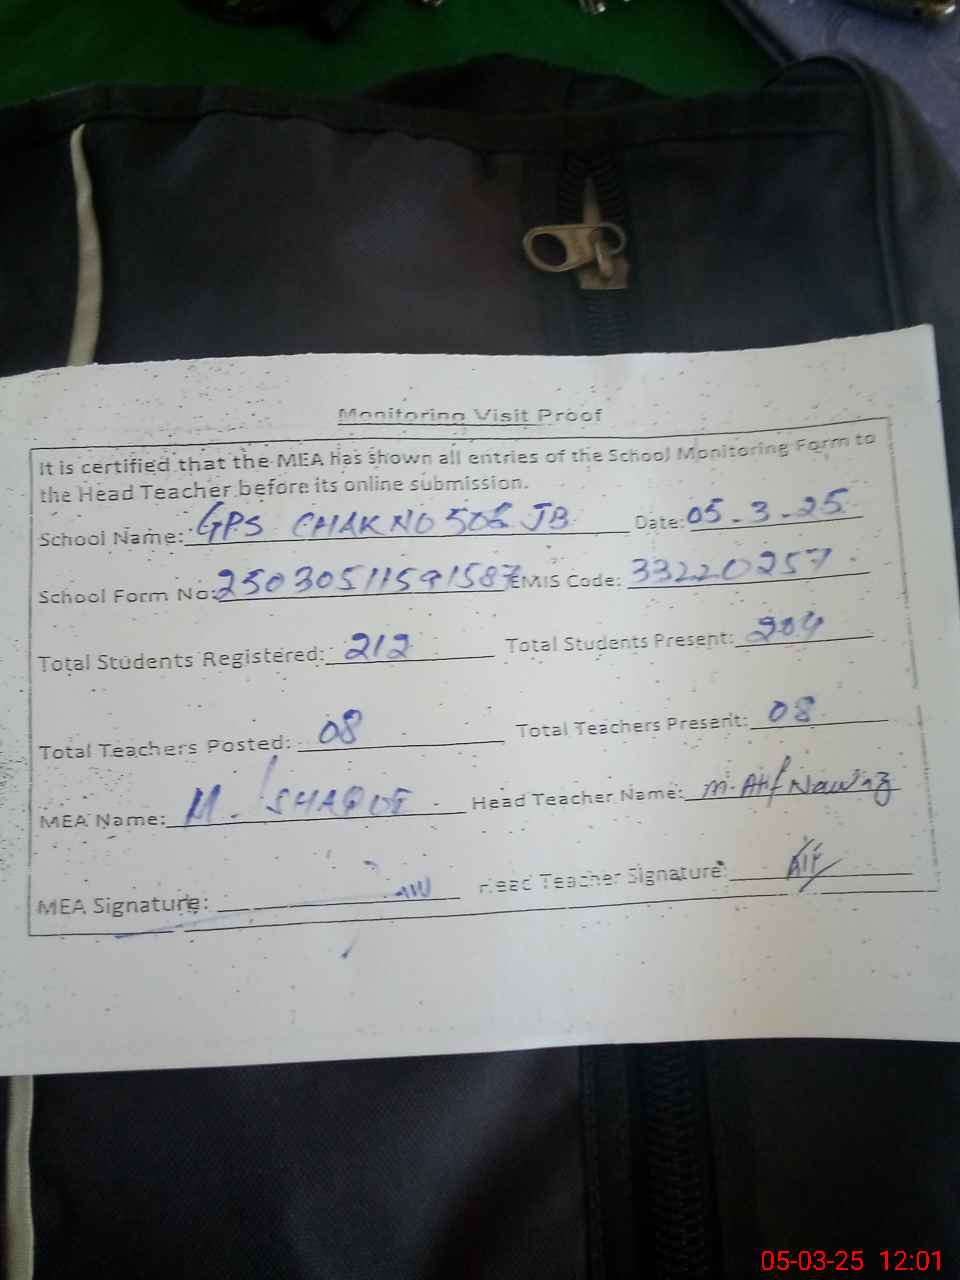 Monitoring Visit Proof
It is certified that the MEA has shown all entries of the School Monitoring Form to
the Head Teacher before its online submission.
School Name: GPS CHAK NO 506 JB Date: 05-3-25
School Form No: 25030511591587 EMIS Code: 33220257
Total Students Registered: 212 Total Students Present: 204
Total Teachers Posted: 08 Total Teachers Present: 08
MEA Name: M. Head Teacher Name: M. Atif Nawaz
MEA Signature: Head Teacher Signature: Atif
05-03-25 12:01